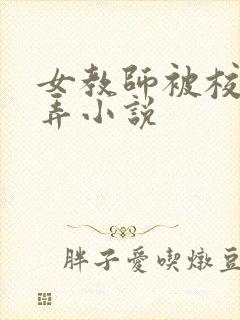 女教師被校
弄小説
胖子愛喫燉豆